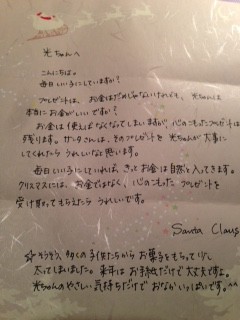 光ちゃんへ
こんにちは。
毎日いい子にしていますか?
プレゼントは、お金はだめじゃないけれども、光ちゃんは
本当にお金がいいですか?
お金は使えばなくなってしまいますが、心のこもったプレゼントは
残ります。サンタさんは、そのプレゼントを光ちゃんが大事に
してくれたらうれしいなと思います。
毎日いい子にしていれば、きっとお金は自然と入ってきます。
クリスマスには、お金ではなく、心のこもったプレゼントを
受け取ってもらえたらうれしいです。
Santa Claus
☆そうそう、多くの子供たちからお菓子をもらって少し
太ってしまいました。来年はお手紙だけで大丈夫ですよ。
光ちゃんのやさしい気持ちだけでおなかいっぱいです。^^